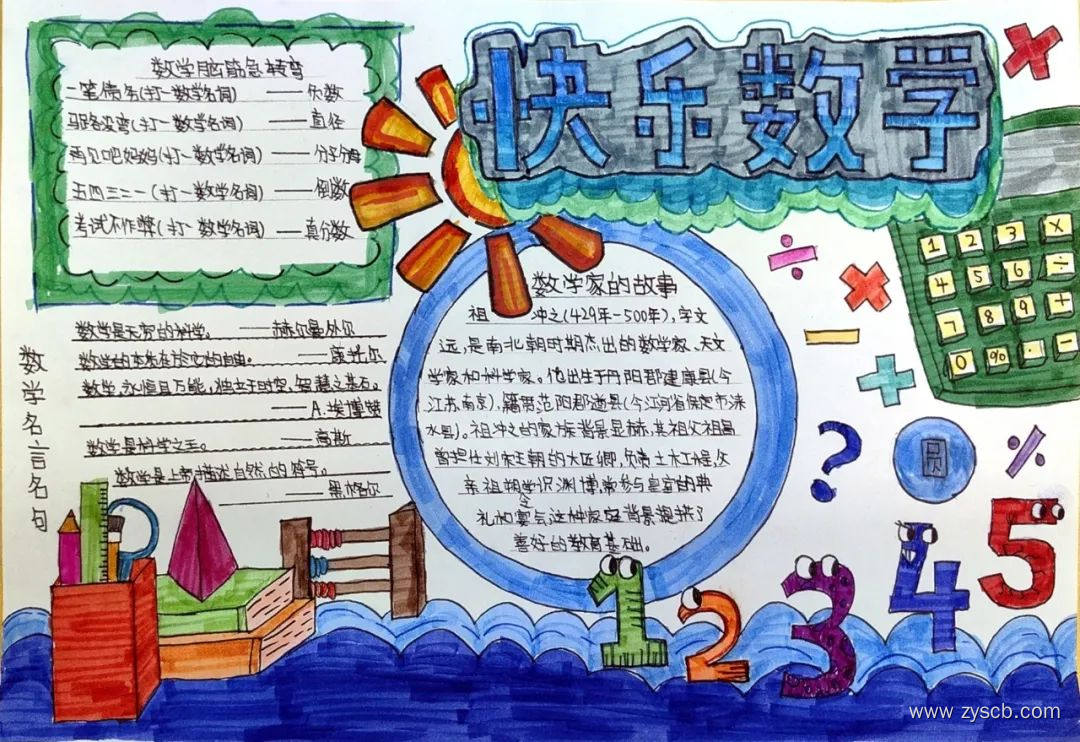 快乐数学
数学脑筋急转弯
二笔债务(打一数学名词) ——负数
马路没弯(打一数学名词) ——直径
再见吧妈妈(打一数学名词) ——分子分母
五四三二一(打一数学名词) ——倒数
考试不作弊(打一数学名词) ——真分数
数学名言名句
数学是无穷的科学。 ——赫尔曼外尔
数学的本质在于它的自由。 ——康托尔
数学,永恒且万能,独立于时空,智慧之基石。
——A.埃博
数学是科学之王。 ——高斯
数学是上帝描述自然的符号。
——黑格尔
数学家的故事
祖冲之(429年-500年),字文
远,是南北朝时期杰出的数学家、天文
学家和科学家。他出生于丹阳郡建康县(今
江苏南京),籍贯范阳郡遒县(今江河省保定市涞
水县)。祖冲之的家族背景显赫,其祖父祖昌
曾担任刘宋王朝的大匠卿,负责土木工程,父
亲祖朔学识渊博,常参与皇宫的典
礼和宴会这种家庭背景提供了
令
善好的教育基础。
1 2 3 ×
4 5 6 ÷
7 8 9 +
0 % · =
÷ × − +
? 圆 %
1 2 3 4 5
www.zyscb.com